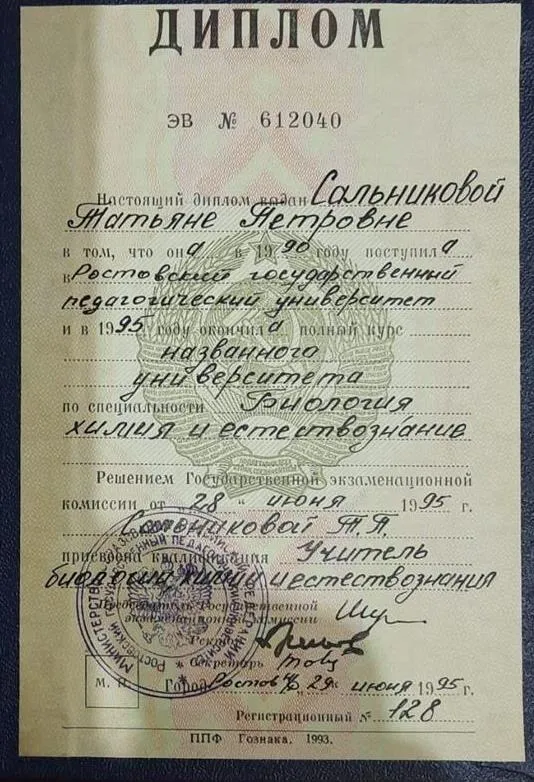 ДИПЛОМ
ЭВ № 612040
Настоящий диплом выдан Сальниковой
Татьяне Петровне
в том, что она в 1990 году поступила
в Ростовский государственный
педагогический университет
и в 1995 году окончила полный курс
названного
университета
по специальности Биология
химия и естествознание
Решением Государственной экзаменационной
комиссии от "28" июня 1995 г.
Сальниковой Т.П.
присвоена квалификация Учитель
биологии химии и естествознания
Председатель Государственной
экзаменационной комиссии
Ректор
Секретарь
М. П. Город Ростов н/Д "29" июня 1995 г.
Регистрационный № 128
ППФ Гознака. 1993.